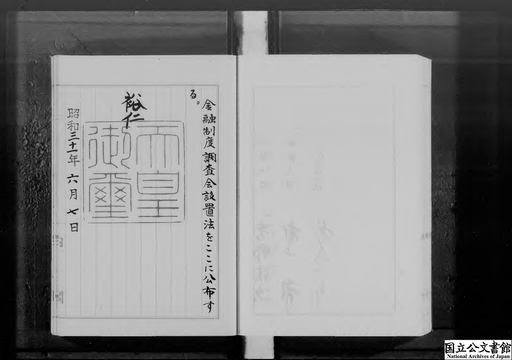 金融制度調査会設置法をここに公布す
る。
裕仁
天皇
御璽
昭和三十一年六月七日
国立公文書館
National Archives of Japan